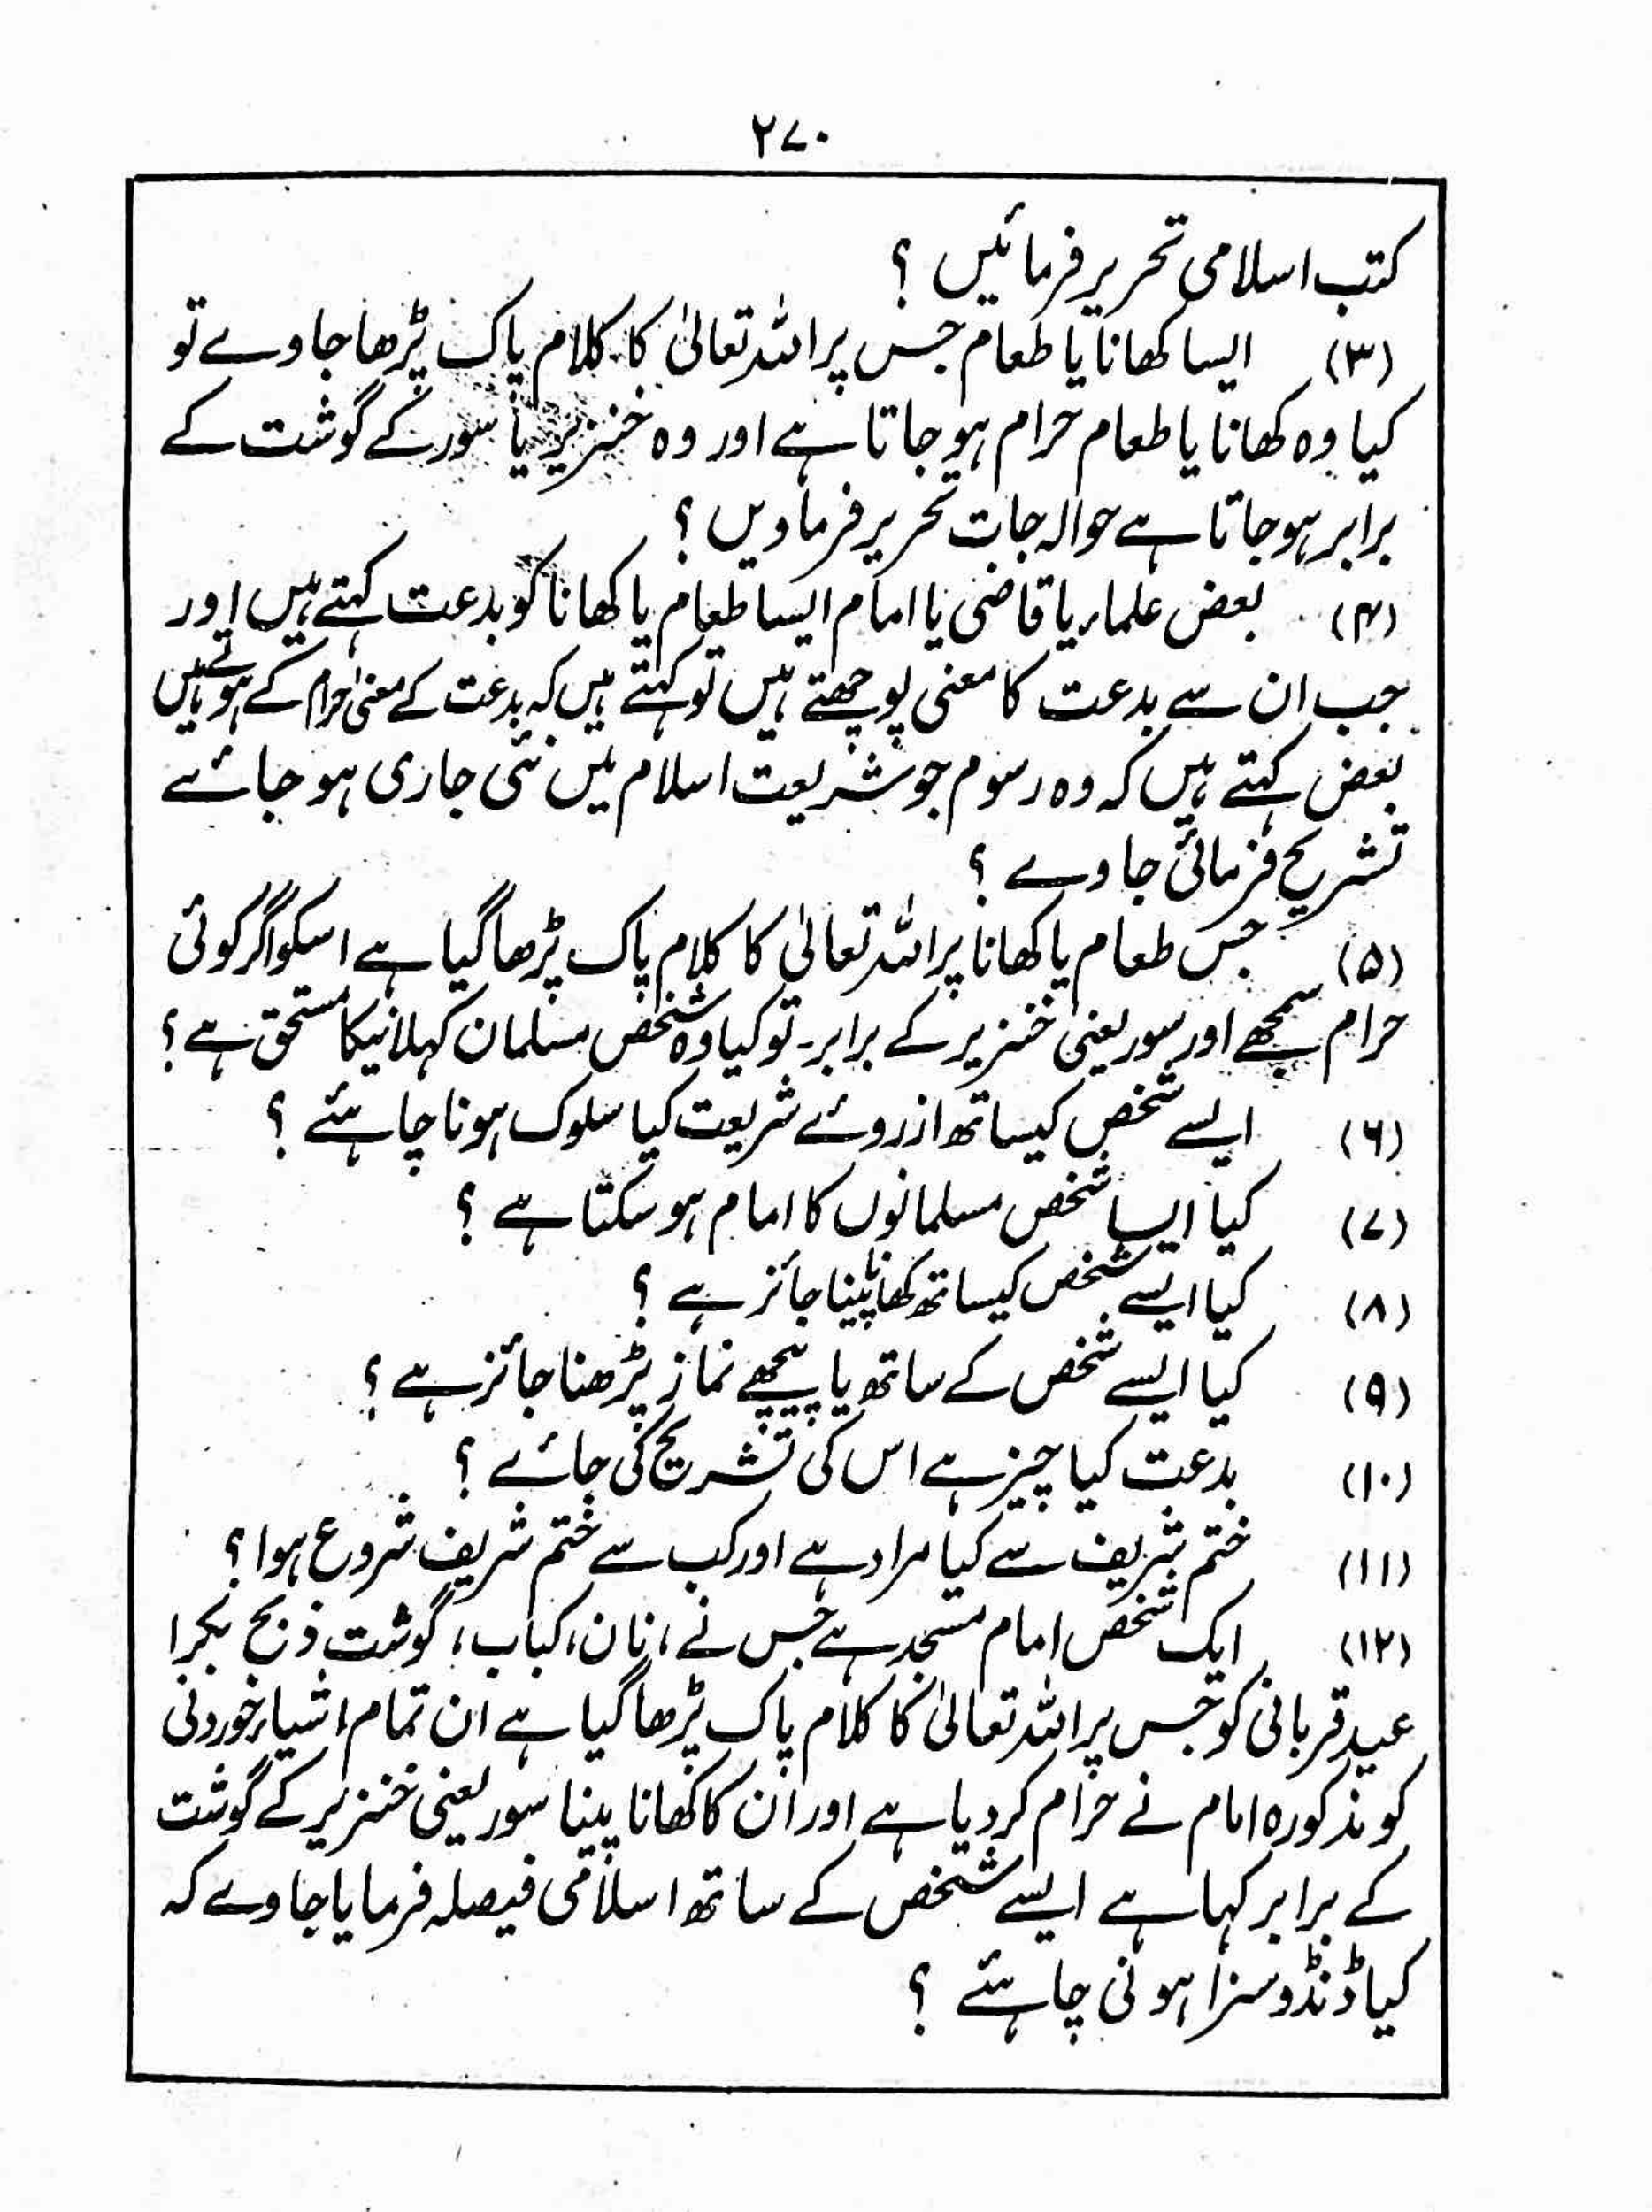 ۲۷۰
کتب اسلامی تحریر فرمائیں ؟
(۳) ایسا کھانا یا طعام جس پر اللہ تعالیٰ کا کلام پاک پڑھا جاوے تو
کیا وہ کھانا یا طعام حرام ہو جاتا ہے اور وہ خنزیر یا سور کے گوشت کے
برابر ہو جاتا ہے حوالہ جات تحریر فرماویں ؟
(۴) بعض علماء یا قاضی یا امام ایسا طعام یا کھانا کو بدعت کہتے ہیں اور
جب ان سے بدعت کا معنی پوچھتے ہیں تو کہتے ہیں کہ بدعت کے معنیٰ حرام کے ہوتے ہیں
بعض کہتے ہیں کہ وہ رسوم جو شریعت اسلام میں نئی جاری ہو جائے
تشریح فرمائی جاوے ؟
(۵) جس طعام یا کھانا پر اللہ تعالیٰ کا کلام پاک پڑھا گیا ہے اسکو اگر کوئی
حرام سمجھے اور سور یعنی خنزیر کے برابر۔ تو کیا وہ شخص مسلمان کہلانیکا مستحق ہے ؟
(۶) ایسے شخص کیساتھ ازروئے شریعت کیا سلوک ہونا چاہئے ؟
(۷) کیا ایسا شخص مسلمانوں کا امام ہو سکتا ہے ؟
(۸) کیا ایسے شخص کیساتھ کھانا پینا جائز ہے ؟
(۹) کیا ایسے شخص کے ساتھ یا پیچھے نماز پڑھنا جائز ہے ؟
(۱۰) بدعت کیا چیز ہے اس کی تشریح کی جائے ؟
(۱۱) ختم شریف سے کیا مراد ہے اور کب سے ختم شریف شروع ہوا ؟
(۱۲) ایک شخص امام مسجد ہے جس نے ، نان ، کباب ، گوشت ذبح بکرا
عید قربانی کو جس پر اللہ تعالیٰ کا کلام پاک پڑھا گیا ہے ان تمام اشیاء خوردنی
کو مذکورہ امام نے حرام کر دیا ہے اور ان کا کھانا پینا سور یعنی خنزیر کے گوشت
کے برابر کہا ہے ایسے شخص کے ساتھ اسلامی فیصلہ فرمایا جاوے کہ
کیا ڈنڈ و سزا ہونی چاہئے ؟